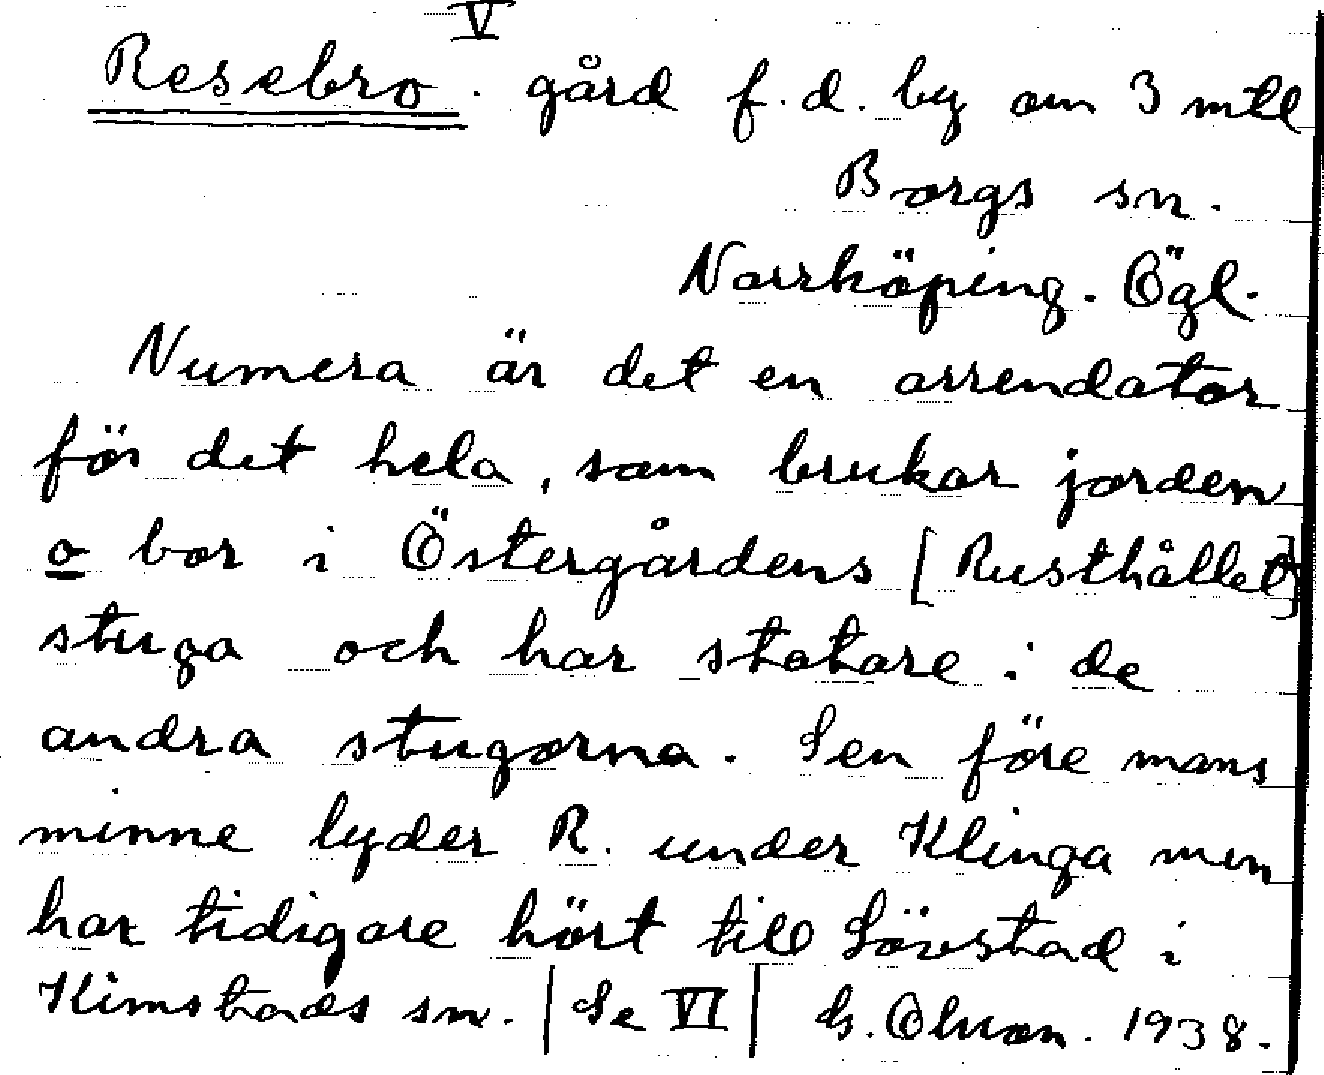 V
Resebro. gård f.d. by om 3 mtl
Borgs sn.
Norrköping. Ögl.
Numera är det en arrendator
för det hela, som brukar jorden
o bor i Östergårdens [Rusthållet]
stuga och har statare i de
andra stugorna. Sen före mans
minne lyder R. under Klinga men
har tidigare hört till Lövstad i
Kimstads sn. | Se VI | G. 1938.